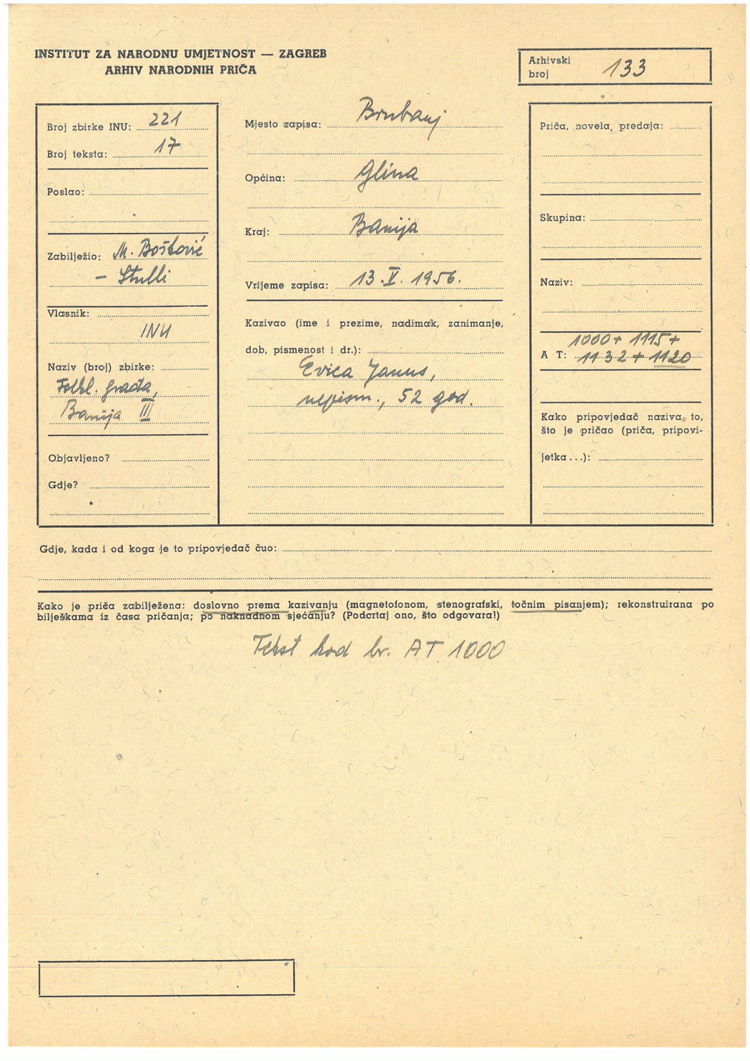 INSTITUT ZA NARODNU UMJETNOST — ZAGREB
ARHIV NARODNIH PRIČA
Arhivski
broj 133
Broj zbirke INU: 221
Broj teksta: 17
Poslao:
Zabilježio: M. Bošković
- Stulli
Vlasnik:
INU
Naziv (broj) zbirke:
Folkl. građa,
Banija III
Objavljeno?
Gdje?
Mjesto zapisa: Brubanj
Općina: Glina
Kraj: Banija
Vrijeme zapisa: 13. V. 1956.
Kazivao (ime i prezime, nadimak, zanimanje,
dob, pismenost i dr.):
Evica Janus,
nepism., 52 god.
Priča, novela, predaja:
Skupina:
Naziv:
1000 + 1115 +
A T: 1132 + 1120
Kako pripovjedač naziva to,
što je pričao (priča, pripovi-
jetka...):
Gdje, kada i od koga je to pripovjedač čuo:
Kako je priča zabilježena: doslovno prema kazivanju (magnetofonom, stenografski, točnim pisanjem); rekonstruirana po
bilješkama iz časa pričanja; po naknadnom sjećanju? (Podcrtaj ono, što odgovara!)
Tekst kod br. AT 1000